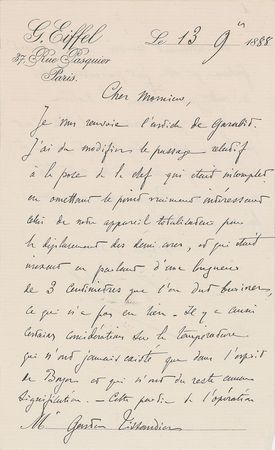 G. Eiffel
37, Rue Pasquier
Paris.
Le 13 9bre 1888
Cher Monsieur,
Je vous renvoie l'article de Garabit.
J'ai dû modifier le passage relatif
à la pose de la clef qui était incomplet
en omettant le point vraiment intéressant
celui de notre appareil totalisateur pour
le déplacement des demi arcs, et qui était
inexact en parlant d'une longueur
de 3 centimètres que l'on dut buriner
ce qui n'a pas eu lieu. Il y a aussi
certaines considérations sur la température
qui n'ont jamais existé que dans l'esprit
de Boyer et qui n'ont du reste aucune
signification. — Cette partie de l'opération
Mr Gaston Tissandier